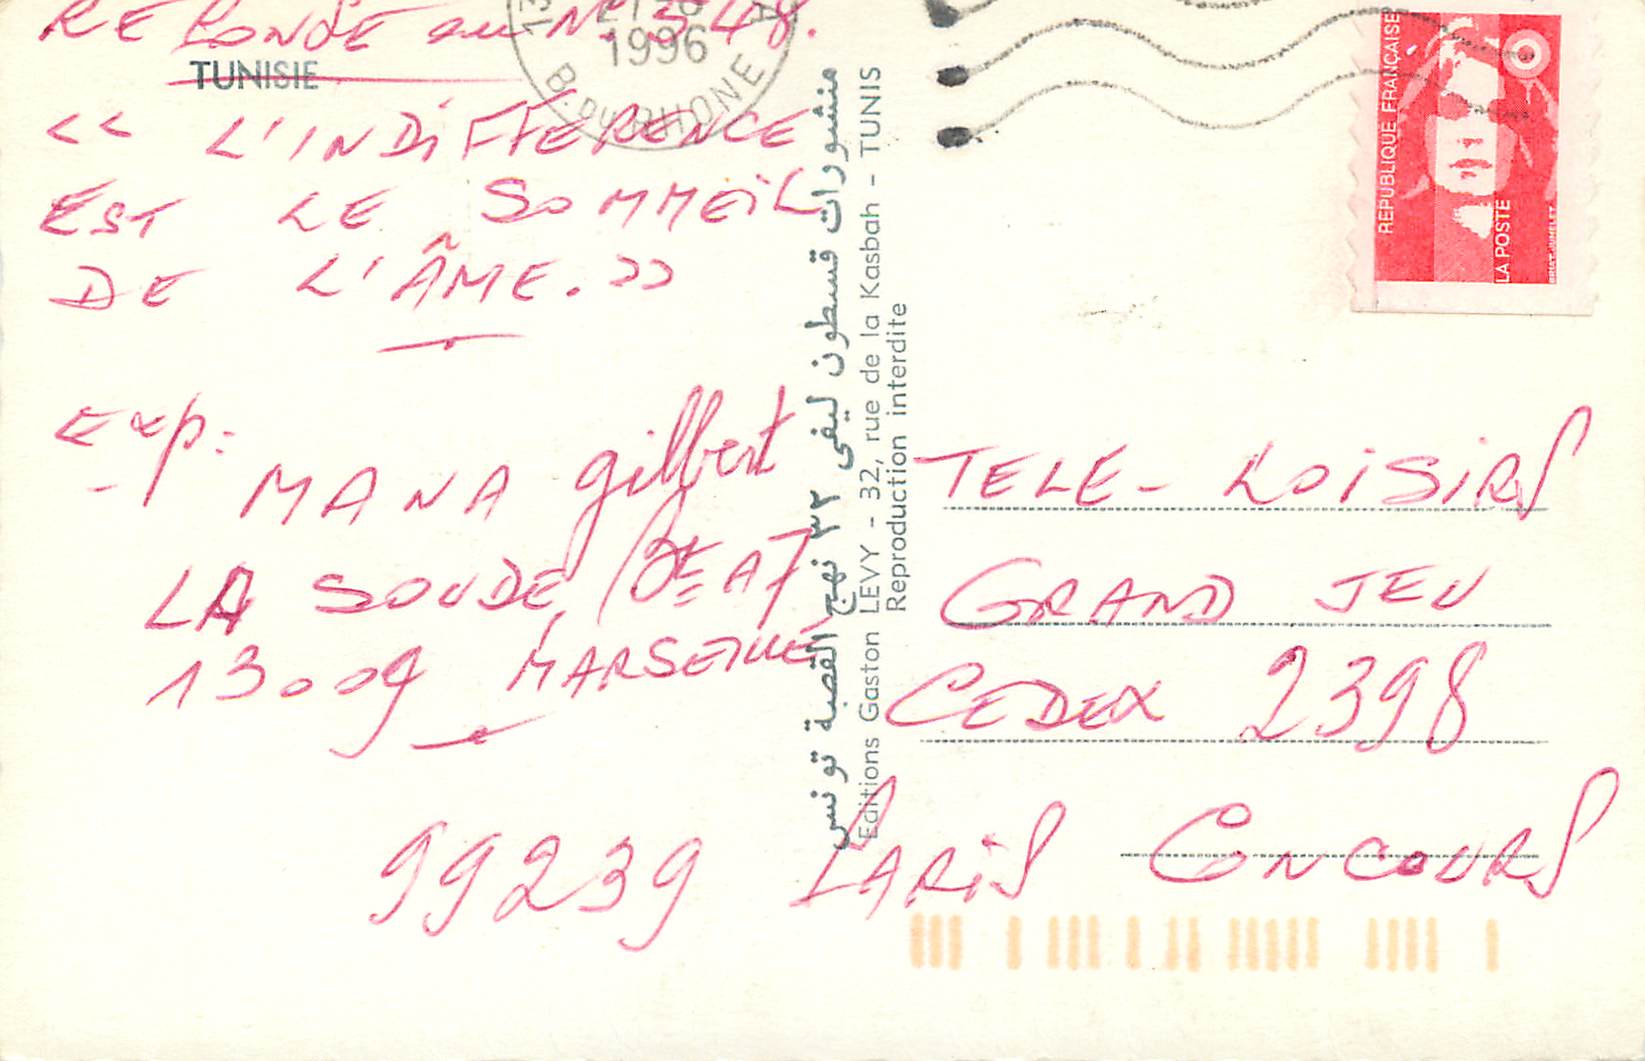 REPONSE au N° 548.
TUNISIE
<< L'INDIFFERENCE
EST LE SOMMEIL
DE L'ÂME. >>
Exp:
MANA gilbert
LA SOUDE
13009 MARSEILLE
13
1996
B. DU RHONE
منشورات قسطون ليفى ٣٢ نهج القصبة تونس
Editions Gaston LEVY - 32, rue de la Kasbah - TUNIS
Reproduction interdite
REPUBLIQUE FRANÇAISE
LA POSTE
TELE-LOISIRS
GRAND JEU
CEDEX 2398
99239 PARIS CONCOURS